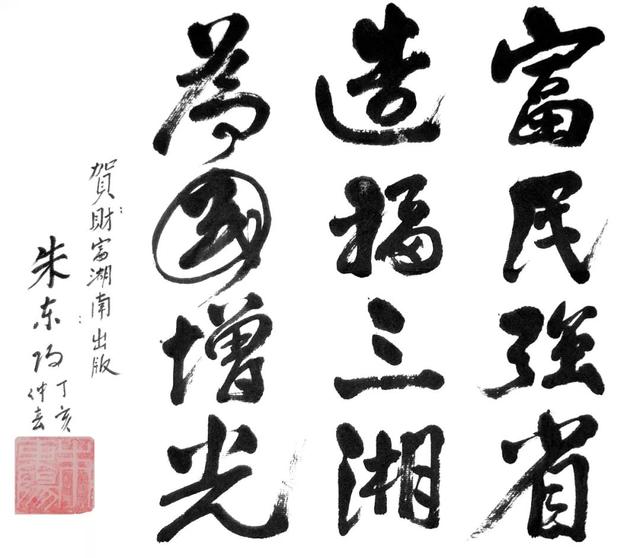 富民強省
造福三湘
為國增光
賀財富湖南出版
朱东阳
丁亥
仲春